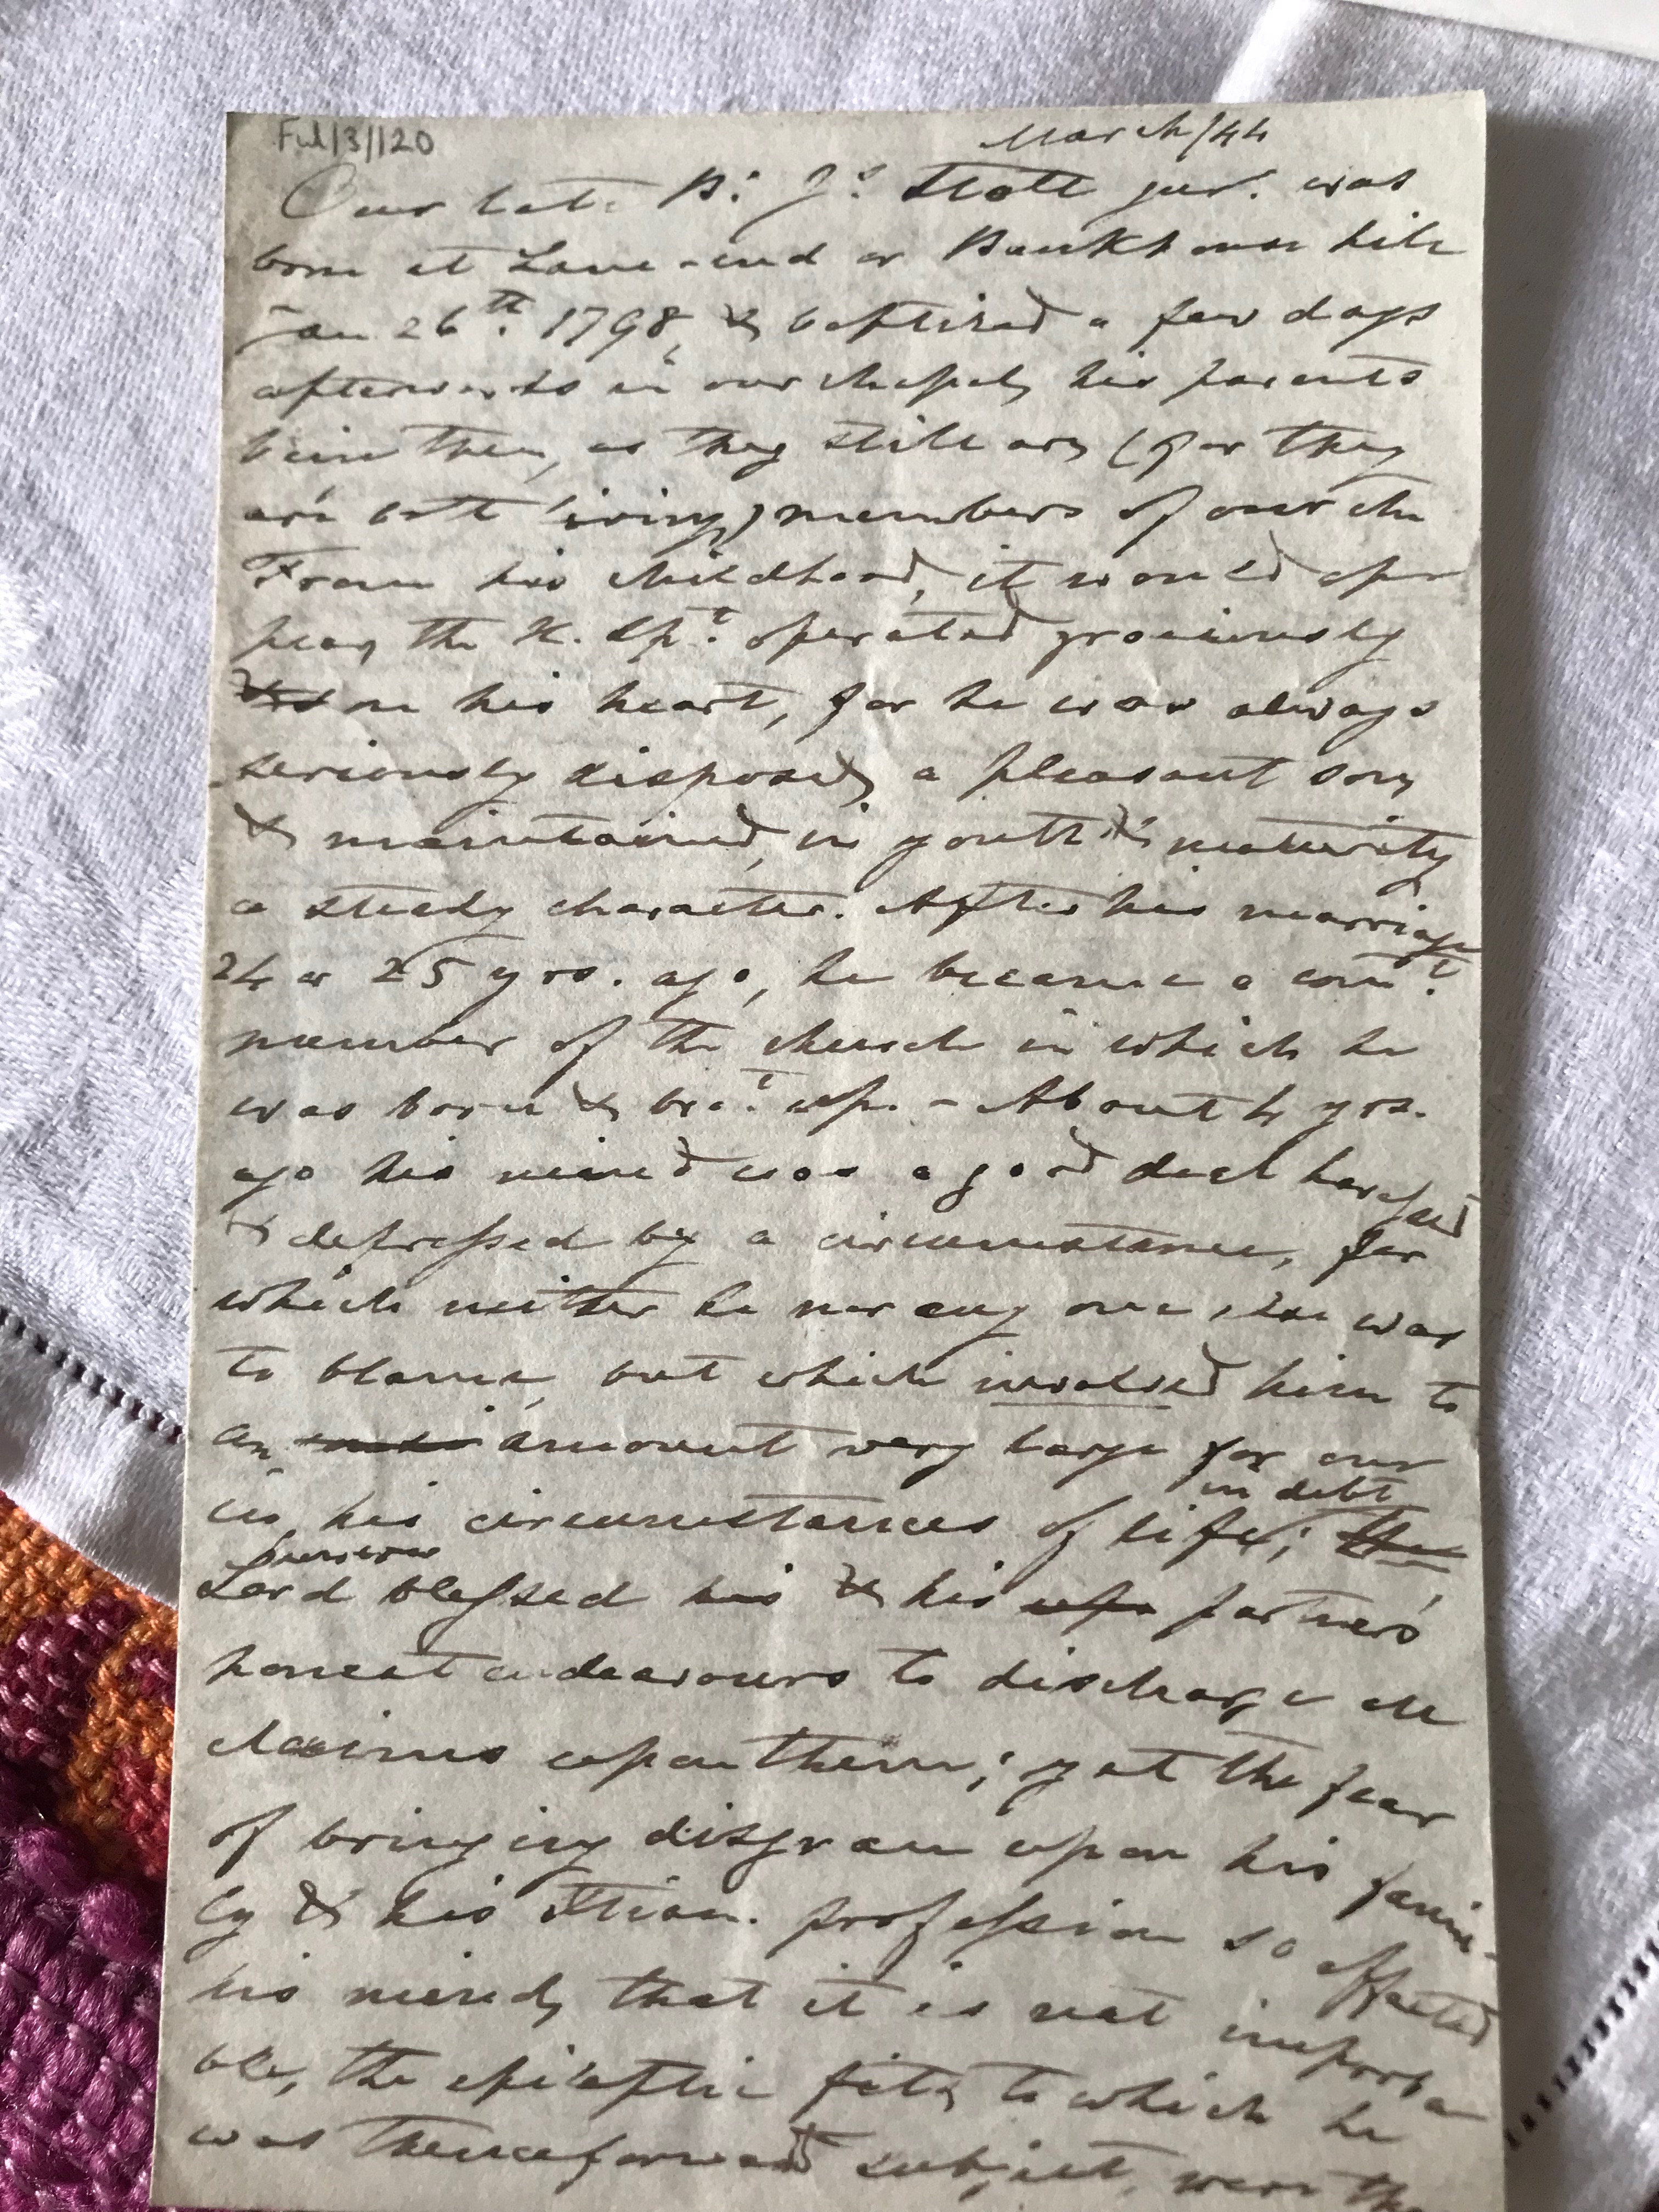 Ful/3/120
March/44
Our late Br. Js. Stott junr. was
born at Lane-end or Bankhouse hill
Jan 26th. 1798, & baptized a few days
afterwards in our chapel, his parents
being then, as they still are, (for they
are both living,) members of our chh
From his childhood, it would ap
pear, the H. Spt. operated graciously
on his heart, for he was always
seriously disposed, a pleasant boy,
& maintained, in youth & maturity
a steady character. After his marriage
24 or 25 yrs. ago, he became a comt.
member of the church in which he
was born & brot. up. - About 4 yrs.
ago his mind was a good deal harassed
& depressed by a circumstance, for
which neither he nor any one else was
to blame, but which involved him to
an amount very large for one
in his circumstances of life; in debt the
Lord blessed his & his partner's
honest endeavours to discharge all
claims upon them; yet the fear
of bringing disgrace upon his fami-
ly & his Xtian. profession so affected
his mind, that it is not improba
ble, the epileptic fits, to which he
was thenceforward subject, were the